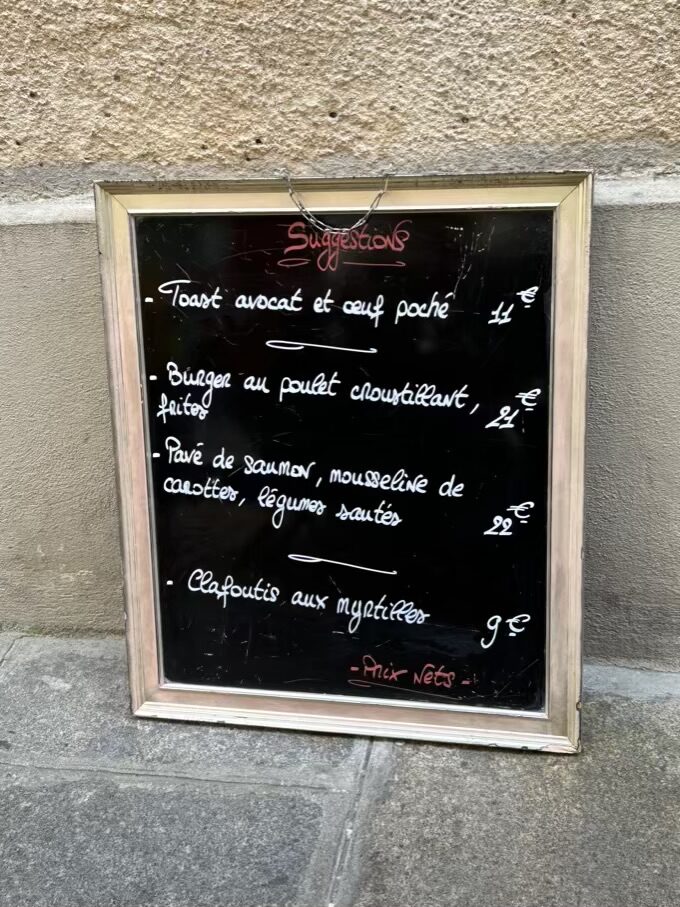 Suggestions
- Toast avocat et œuf poché 11€
- Burger au poulet croustillant,
frites 21€
- Pavé de saumon, mousseline de
carottes, légumes sautés 22€
- Clafoutis aux myrtilles 9€
- Prix Nets -